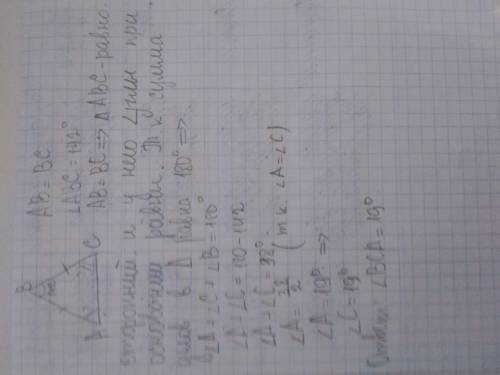 B
A
C
AB = BC
∠ABC = 142°
AB = BC => △ABC - равно.
сторонний и у него ∠углы при
основании равны. Т к сумма
углов в △ равна 180° =>
∠A + ∠C + ∠B = 180°
∠A + ∠C = 180 - 142
∠A + ∠C = 38°
∠A = 38/2 (т к. ∠A = ∠C)
∠A = 19° =>
∠C = 19°
Ответ: ∠BCA = 19°